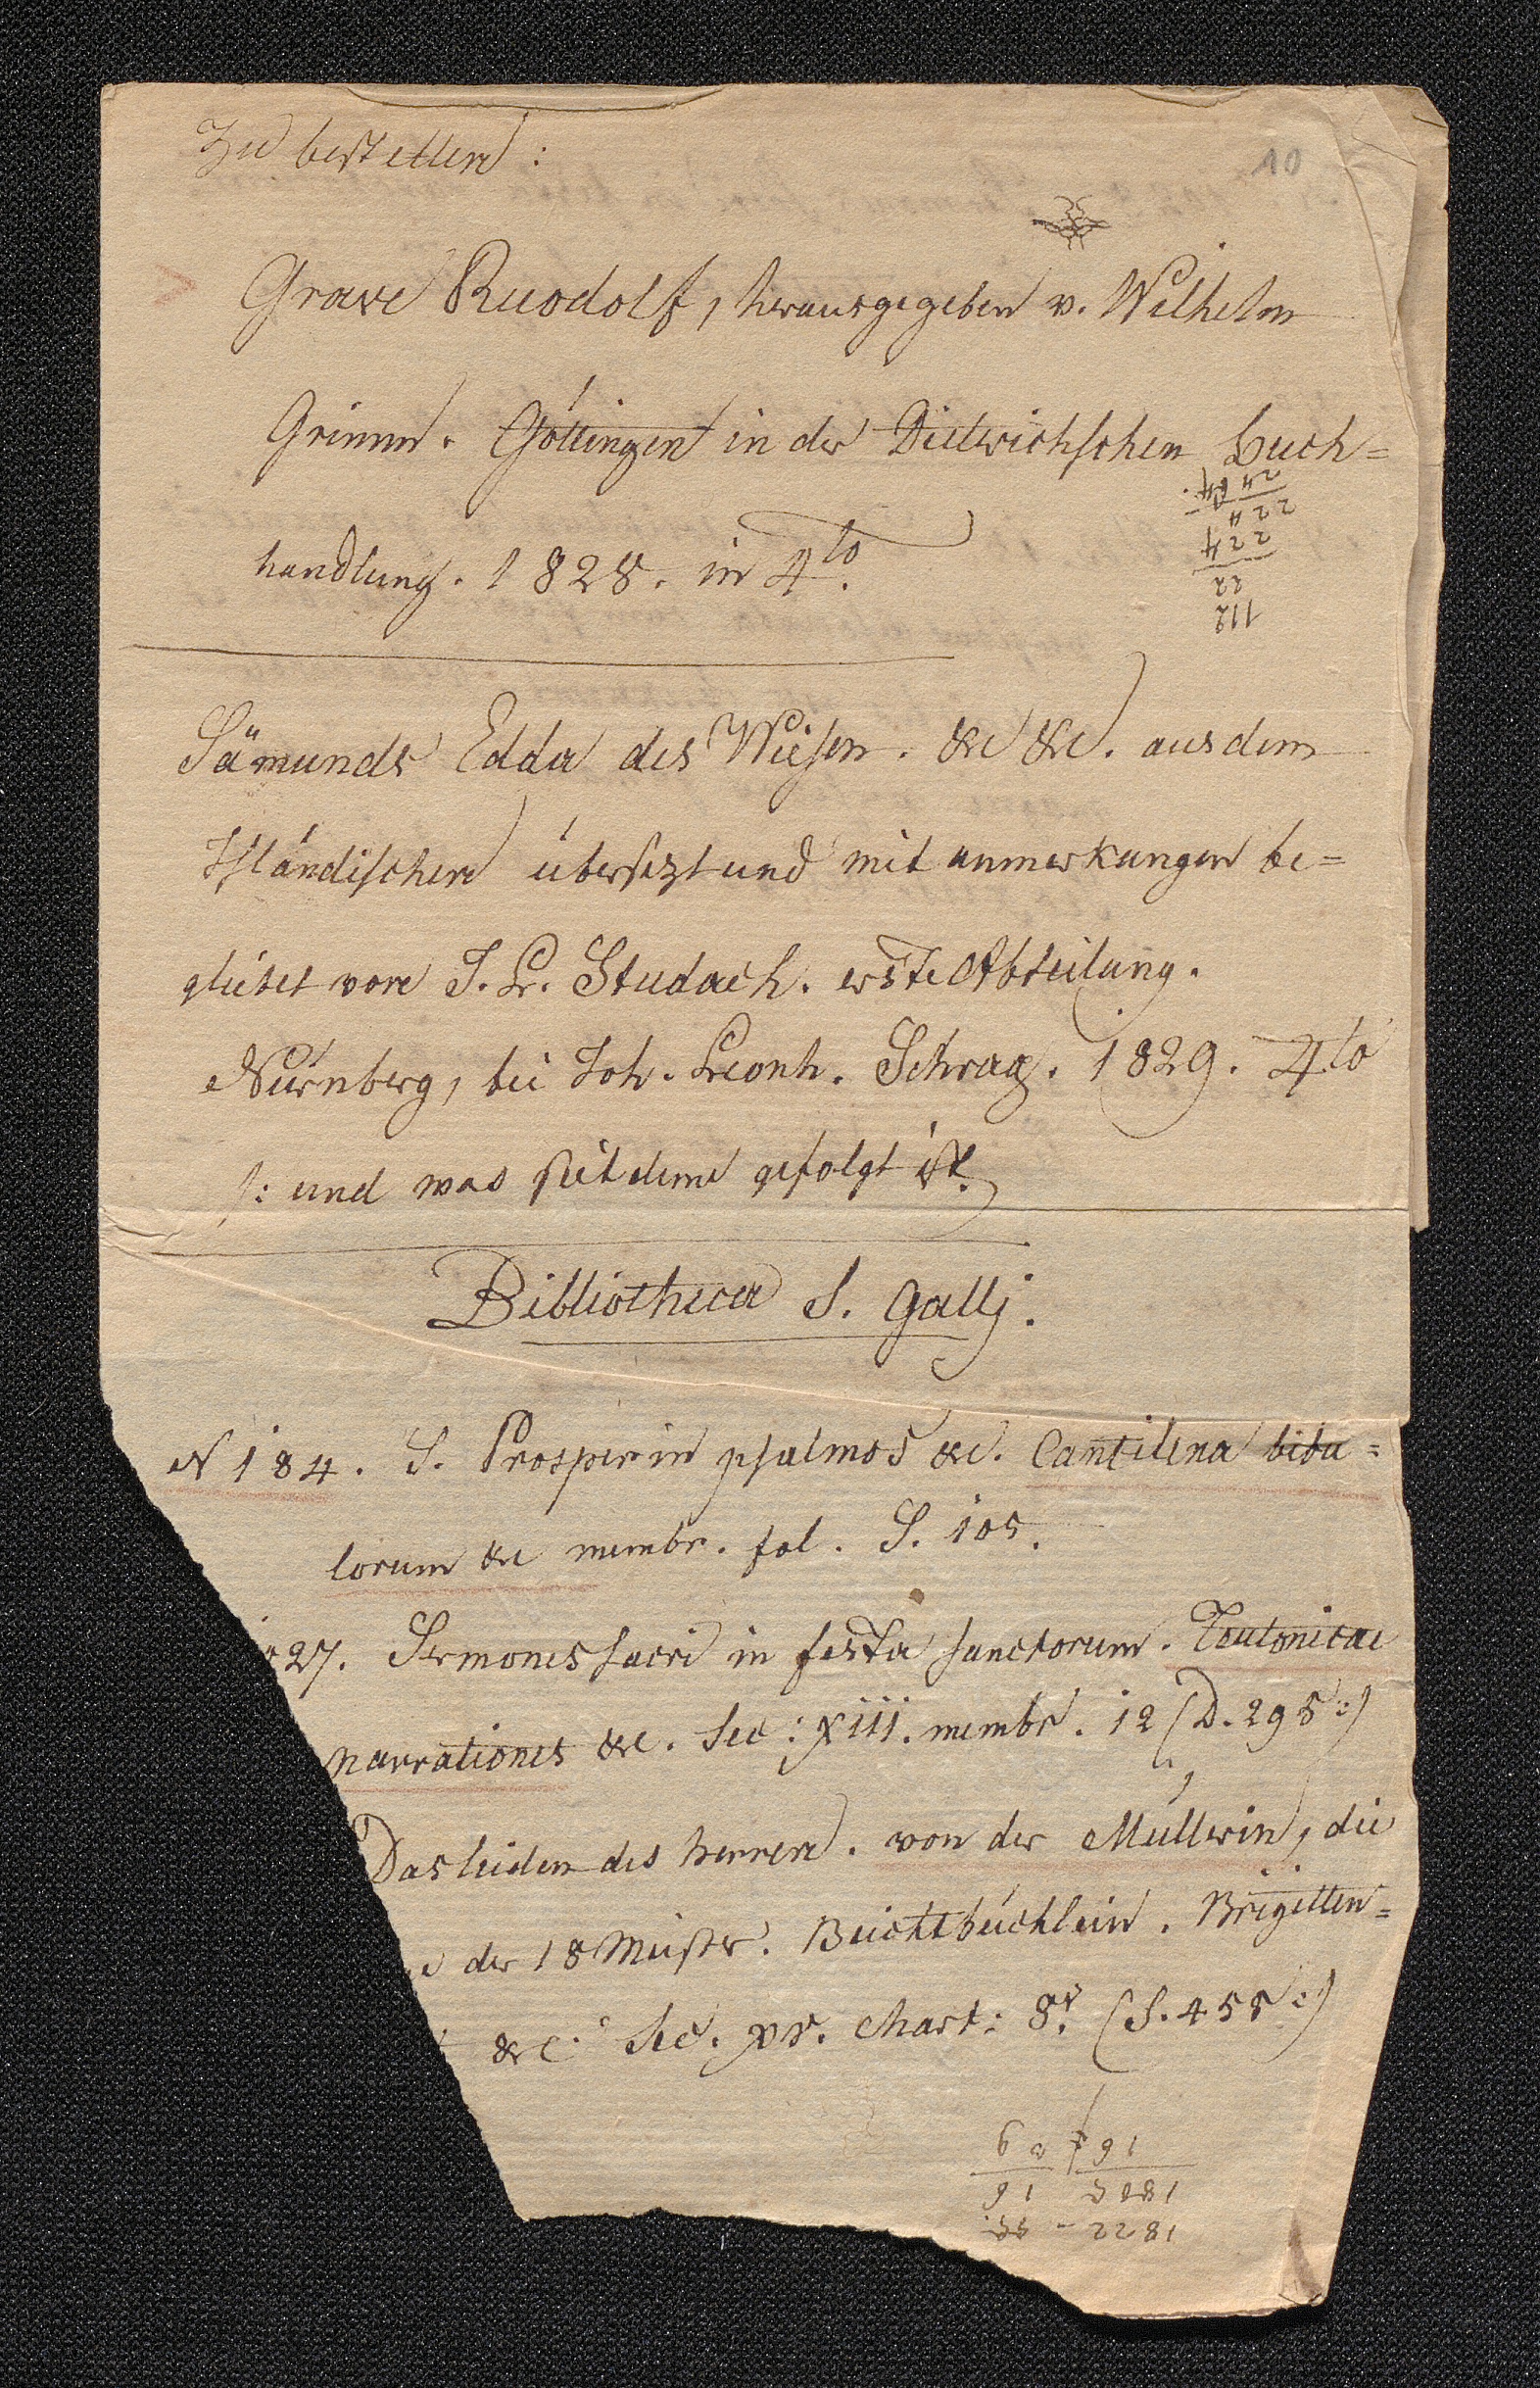 Zu bestellen:
10
Grave Ruodolf, herausgegeben v. Wilhelm
Grimm. Göttingen in der Dietrichschen Buch=
handlung. 1828. in 4to.
112
22
224
224
Sämunds Edda des Weisen. &c &c. aus dem
Isländischen übersezt und mit anmerkungen be=
gleitet von J. L. Studach. erste Abteilung.
Nürnberg, bei Joh. Leonh. Schrag. 1829. 4to
/: und was seitdeme gefolgt ist.
Bibliotheca S. Gallj.
N 184. S. Prosper in psalmos &c. Cantilena bibu=
lorum &c membr. fol. S. 105.
27. Sermones sacri in festa sanctorum. Teutonicae
narrationes &c. Sec: XIII. membr. 12 (D. 295:)
Das leiden des herren. von der Müllerin, die
der 18 Meister. Beichtbüchlein. Brigitten=
&c. Sec. XV. chart: 8º. (S. 458:)
1822
16
16